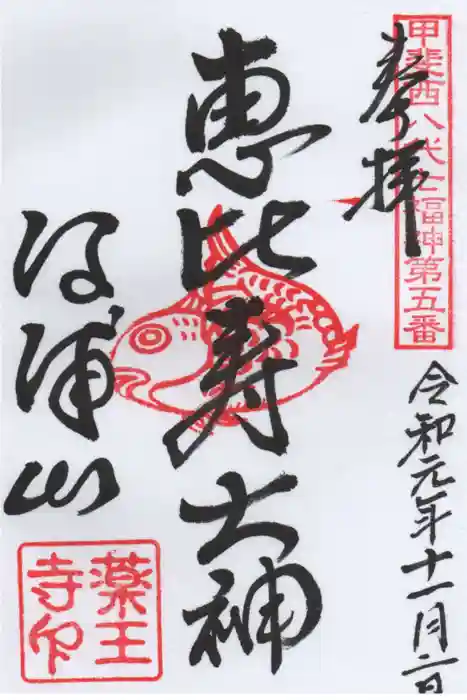 甲斐西八代七福神第五番
奉拝
令和元年十一月二日
恵比寿大神
河浦山
薬王
寺印